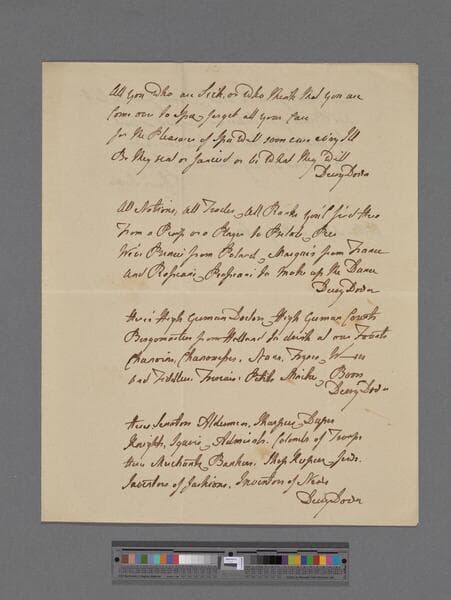 All you Who are Sick, or Who think that you are
Come over to Spa, forget all your Care
for the Pleasures of Spa Will soon cure every Ill
Be they real or fancied or be What they Will
Derry Down
All Nations, all Trades, All Ranks you'l find Here
From a or a Player to Prelate, Peer
Here's Princes from Poland, Marquis's from France
and to make up the Dance
Derry Down
Here's High German Doctors, High German Counts
Burgomasters from Holland to drink at our Founts
Chanoins, Chanoinesses, Nuns,
bad Fiddlers, Petits Maitres, Boors
Derry Down
Here Senators Aldermen, Sharpers, Dupes
Knights, Squires, Admirals, Colonels of Troops
Here Merchants, Bankers, Shop Keepers, Jews.
Inventors of fashions, Inventors of News
Derry Down